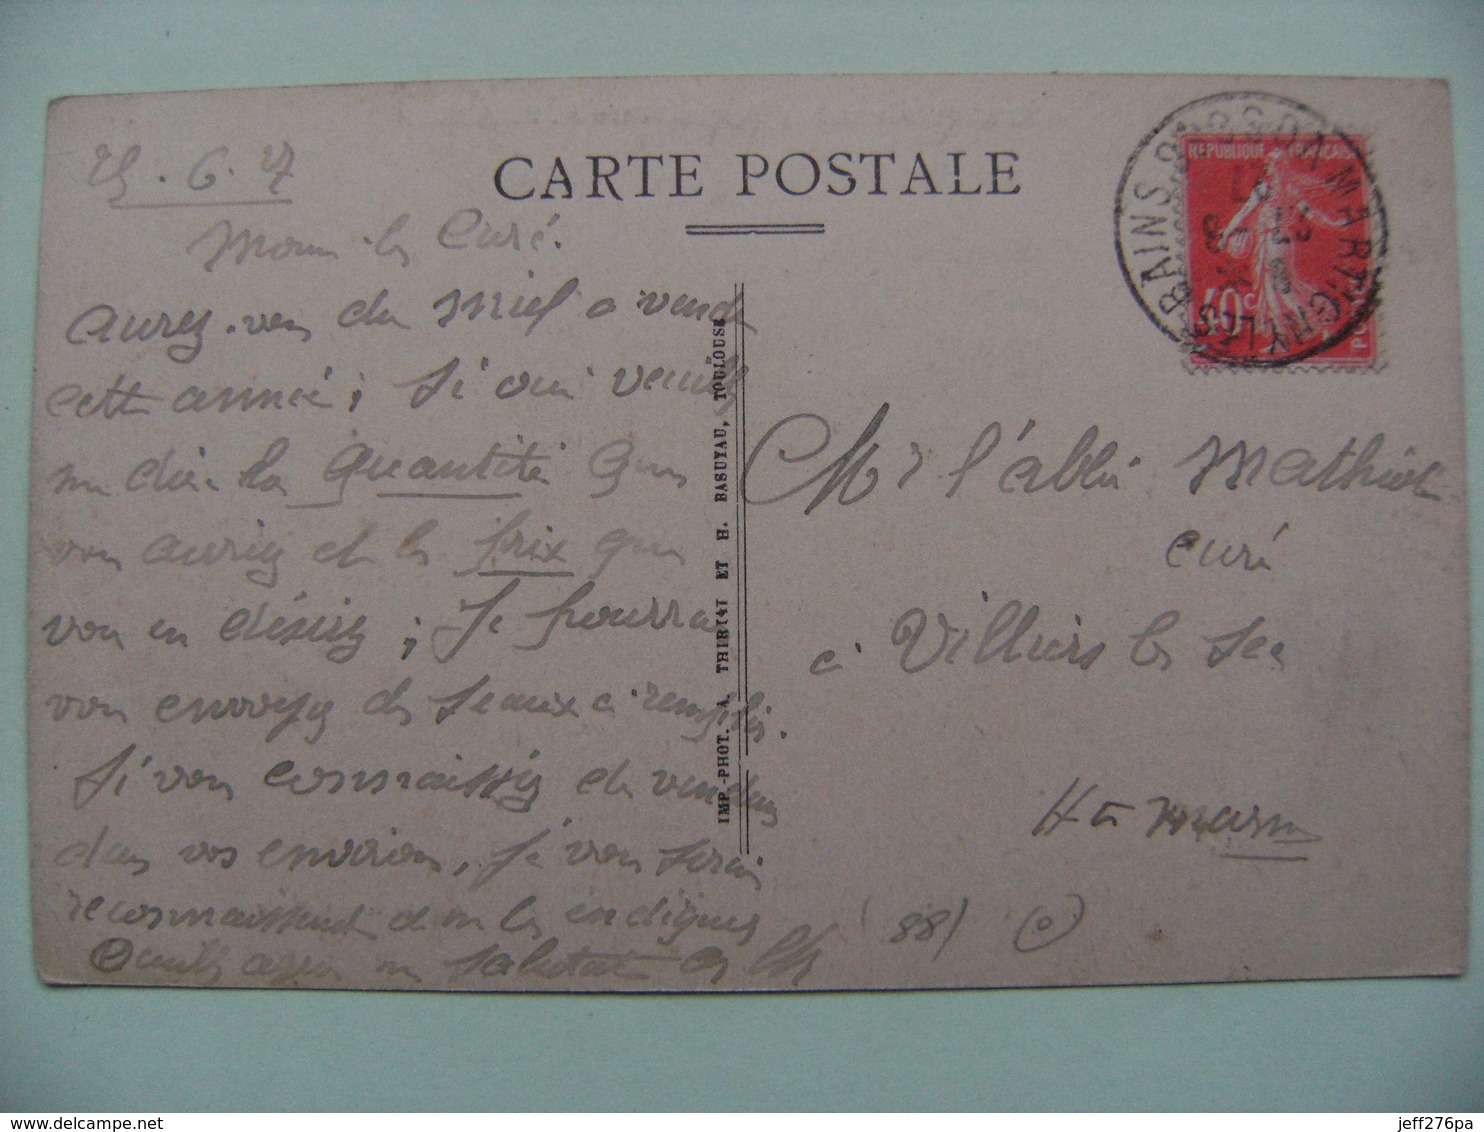 CARTE POSTALE
25.6.27
Mons. le Curé.
aurez-vous du miel a vendre
cette année; si oui veuillez
me dire la quantité que
vous auriez et le prix que
vous en désirez; je pourrai
vous envoyer des seaux a remplir.
Si vous connaissez des vendeurs
dans vos environs, je vous serais
reconnaissant de me les indiquer
Veuillez agréer mes salutat
IMP.-PHOT. A. THIRIAT ET H. BASUYAU, TOULOUSE
REPUBLIQUE FRANCAISE
40c
BAINS MARTIGNY LES
Mr l'abbé Mathieu
curé
à Villiers le Sec
Hte Marne
(88)
jeff276pa